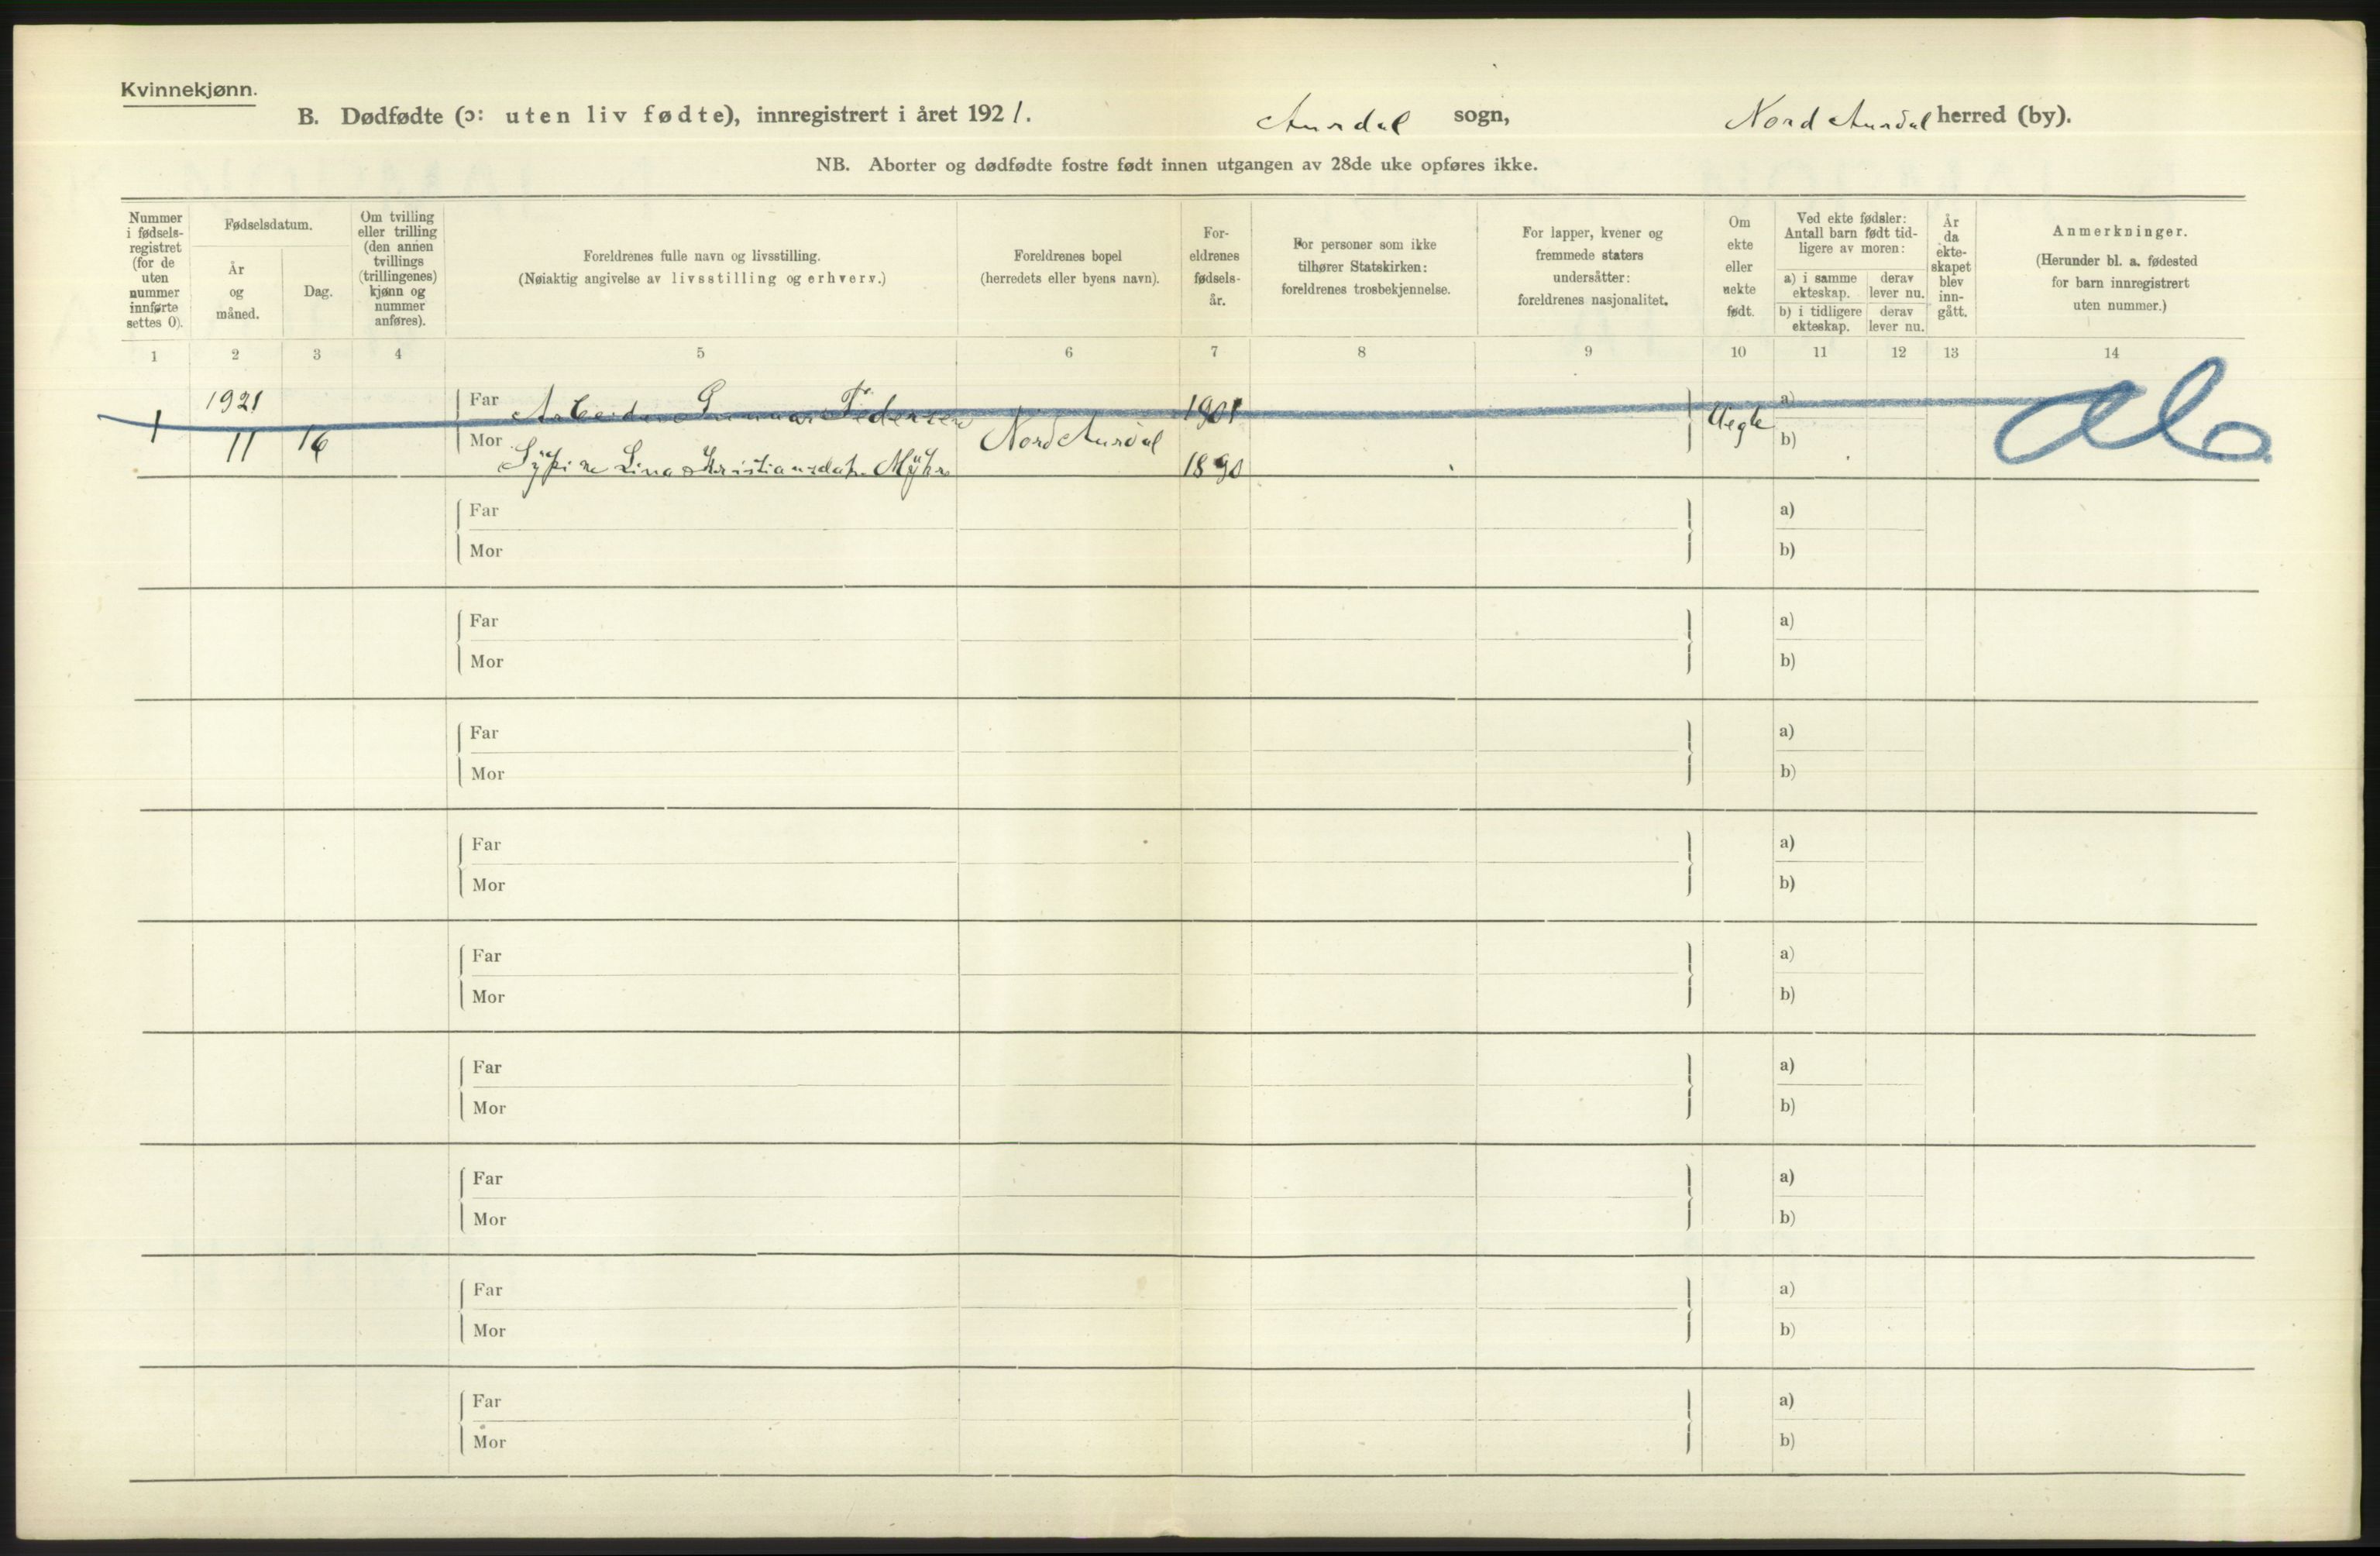 Kvinnekjønn.
B. Dødfødte (ɔ: uten liv fødte), innregistrert i året 1921. Aurdal sogn, Nord Aurdal herred (by).
NB. Aborter og dødfødte fostre født innen utgangen av 28de uke opføres ikke.
Nummer i fødsels-registret (for de uten nummer innførte settes 0).
Fødselsdatum.
År og måned.
Dag.
Om tvilling eller trilling (den annen tvillings (trillingenes) kjønn og nummer anføres).
Foreldrenes fulle navn og livsstilling.
(Nøiaktig angivelse av livsstilling og erhverv.)
Foreldrenes bopel
(herredets eller byens navn).
For-eldrenes fødsels-år.
For personer som ikke tilhører Statskirken: foreldrenes trosbekjennelse.
For lapper, kvener og fremmede staters undersåtter: foreldrenes nasjonalitet.
Om ekte eller uekte født.
Ved ekte fødsler: Antall barn født tid-ligere av moren:
a) i samme ekteskap. derav lever nu.
b) i tidligere ekteskap. derav lever nu.
År da ekte-skapet blev inn-gått.
Anmerkninger.
(Herunder bl. a. fødested for barn innregistrert uten nummer.)
1 2 3 4 5 6 7 8 9 10 11 12 13 14
1921 Far Arbeider Gunnar Pedersen 1901 a)
1 11 16 Mor Nord Aurdal Uegte b)
Lina Kristiansdat. 1890
Far a)
Mor b)
Far a)
Mor b)
Far a)
Mor b)
Far a)
Mor b)
Far a)
Mor b)
Far a)
Mor b)
Far a)
Mor b)
Far a)
Mor b)
Far a)
Mor b)